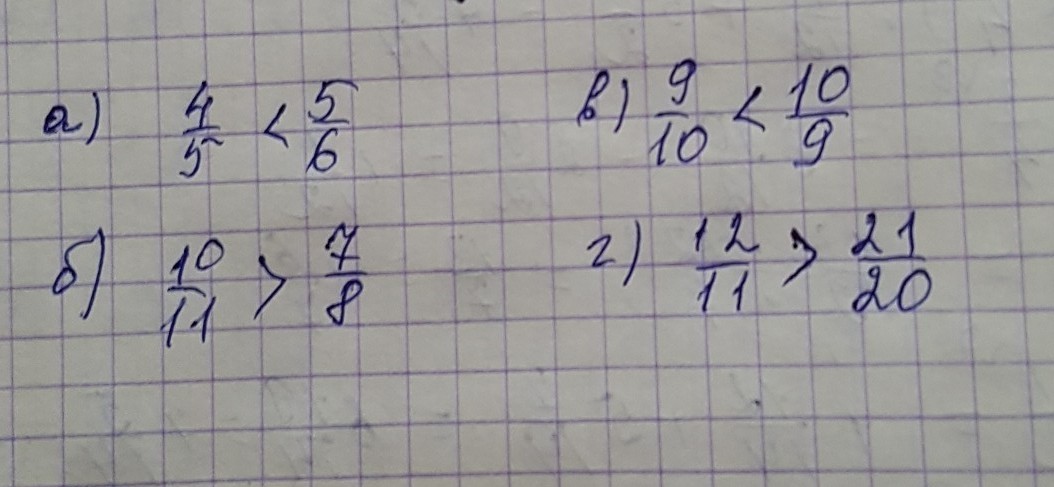 а) 4/5 < 5/6
в) 9/10 < 10/9
б) 10/11 > 7/8
г) 12/11 > 21/20